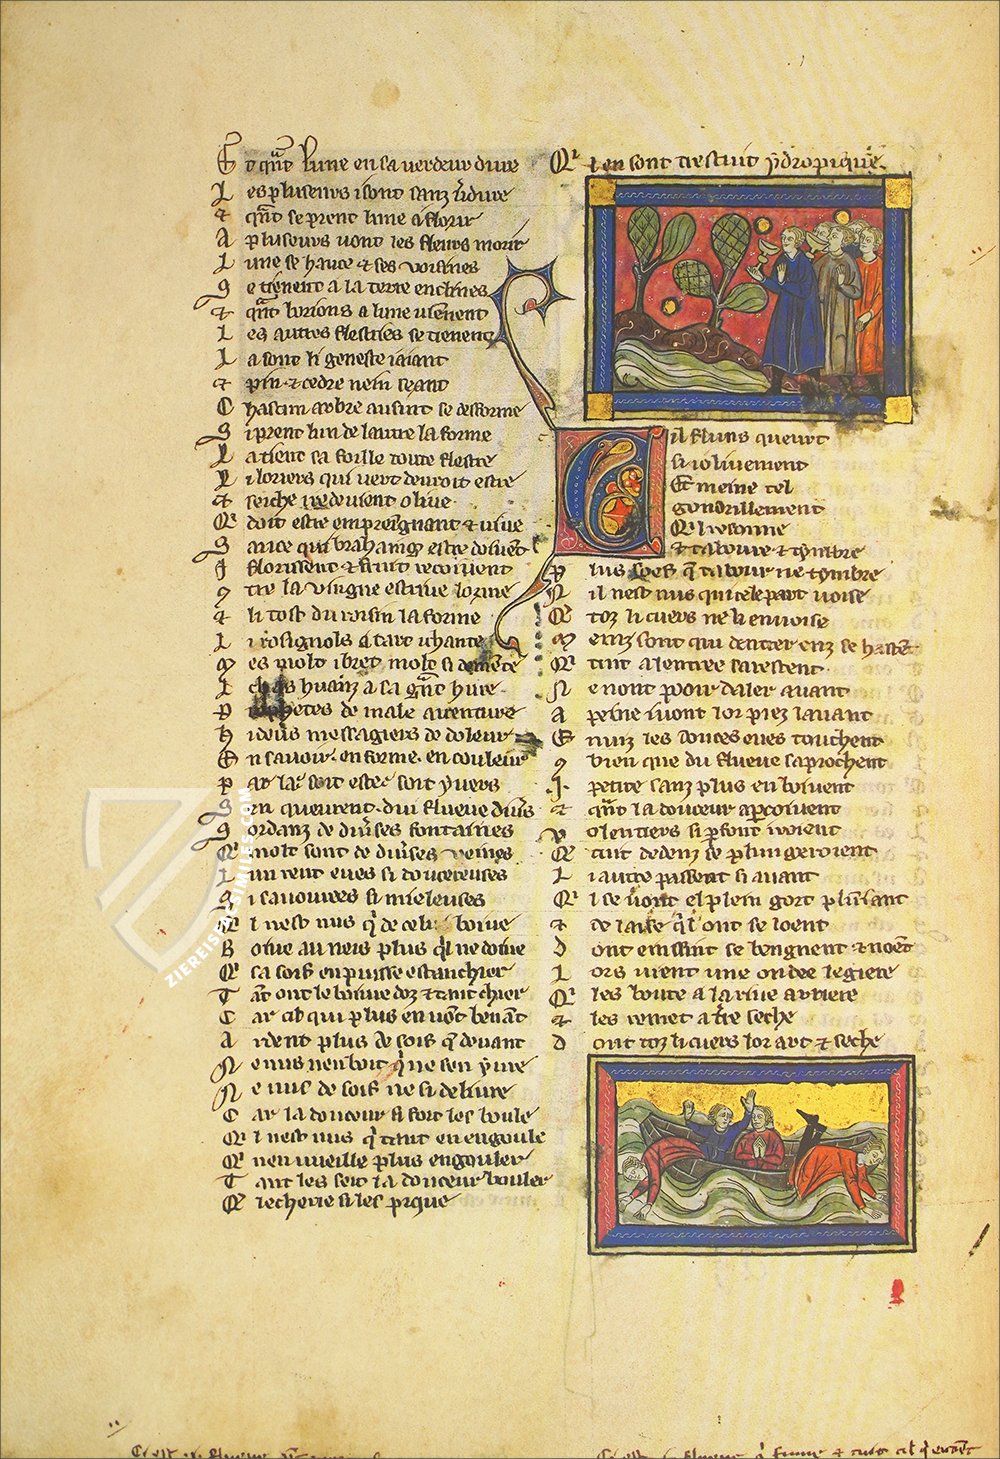 Et quant lune en sa verdeur dure
Les pluseurs i sont sanz verdure
et quant se prent lune a florir
A pluseurs vont les fleurs morir
Lune se hauce et ses voisines
se tienent a la terre enclines
et quant borions a lune vienent
Les autres flestries se tienent
La sont li geneste iaiant
et pin et cedre nein seant
Chascun arbre ausint se defforme
Si prent lun de lautre la forme
La tient sa foille toute flestre
Li loriers qui vert devroit estre
et seiche redevient olive
Qui doit estre empreignant et vive
Sauce qui brahaing estre doivent
I florissent et fruit recoivent
tre la vingne estrive lorme
et li tost du roisin la forme
Li rosignols a tart i chante
mes molt i bret molt si demente
Li huanz a sa grant hure
Prophetes de male aventure
Hideus messagiers de doleur
En savoir en forme en couleur
Par la soit estes soit yvers
Sen queurent dui flueve divers
Sordanz de diverses fontaines
Qui molt sont de diverses veines
Lun rent eves si doucereuses
Si savourees si mieleuses
Quil nest nus qui de celui boive
Boive au neis plus quil ne doive
Qui sa soif en puisse estanchier
Tant ont le boivre douz et tant chier
Car cil qui plus en vont bevant
Ardent plus de soif que devant
Ne nus nen boit qui ne sen yvre
Ne nus de soif ne si delivre
Car la douceur si fort les boule
Quil nest nus qui tant en engoule
Quil nen vueille plus engouler
Tant les seit la douceur bouler
Que lecherie si les pique
Quil en sont trestuit ydropique
Cil fluns queurt
si iolivement
Et meine tel
gondrillement
Quil resonne
et taboure et tymbre
Plus soef que tabour ne tymbre
Nil nest nus qui cele part voise
Que touz li cuers ne li envoise
Meinz sont qui dentrer enz se hastent
Qui tuit a lentree sarestent
Ne nont pooir daler avant
A peine i vont lor piez lavant
Enviz les douces eves touchent
Combien que du flueve saprochent
I petite sanz plus en boivent
et quant la douceur apercoivent
Volentiers si parfont iroient
Que tuit dedenz se plungeroient
Li autre passent si avant
Quil se vont el plein gort plunjant
et de laise quil ont se loent
Dont einsint se bengnent et noent
Lors vient une ondee legiere
Qui les boute a la rive arriere
et les remet a terre seche
Dont touz li cuers lor art et seche
ZIEREIS FACSIMILES.COM